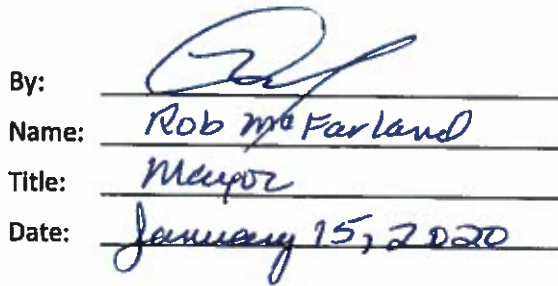 By:
Name: Rob McFarland
Title: Mayor
Date: January 15, 2020